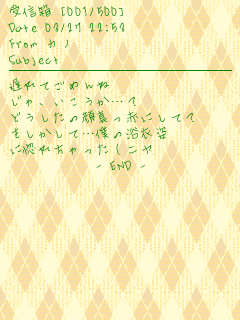 受信箱 [001/500]
Date 03/27 22:53
From カノ
Subject
遅れてごめんね
じゃ、いこうか…?
どうしたの顔真っ赤にしてて
もしかして…僕の浴衣姿
に惚れちゃった(ニヤ
- END -